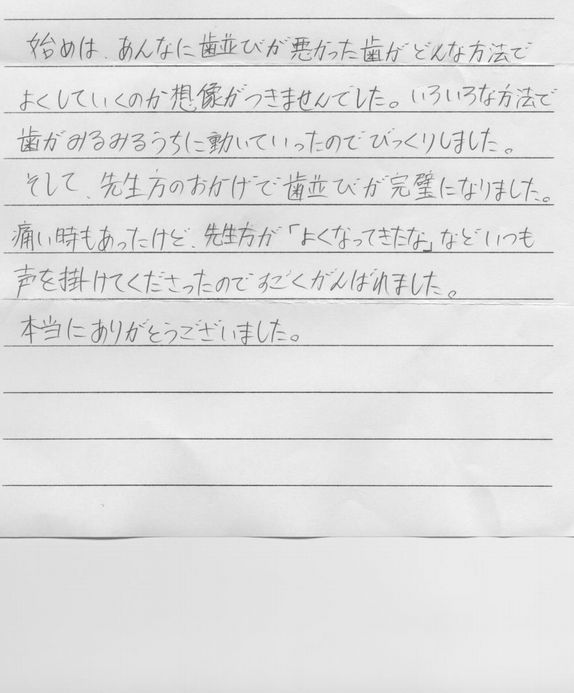 始めは、あんなに歯並びが悪かった歯がどんな方法で
よくしていくのか想像がつきませんでした。いろいろな方法で
歯がみるみるうちに動いていったのでびっくりしました。
そして、先生方のおかげで歯並びが完璧になりました。
痛い時もあったけど、先生方が「よくなってきたな」などいつも
声を掛けてくださったのですごくがんばれました。
本当にありがとうございました。